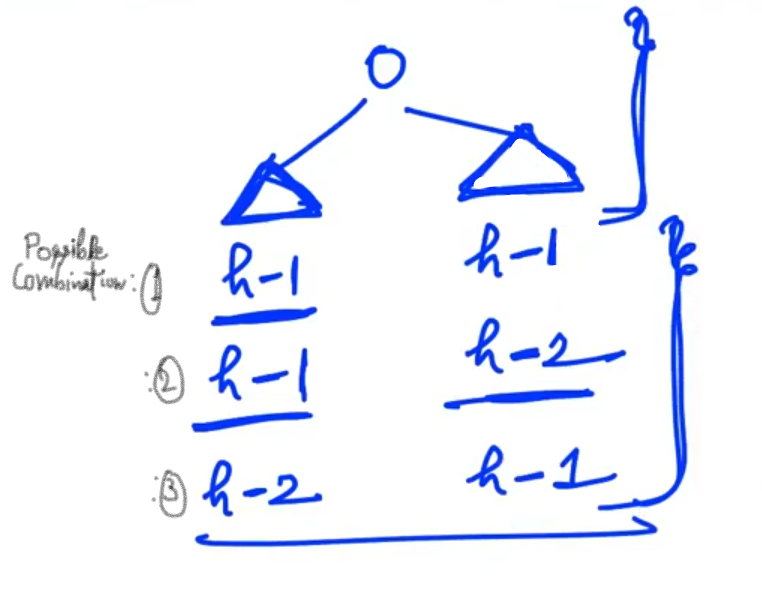 Possible
Combination: ① h-1 h-1
:② h-1 h-2
:③ h-2 h-1